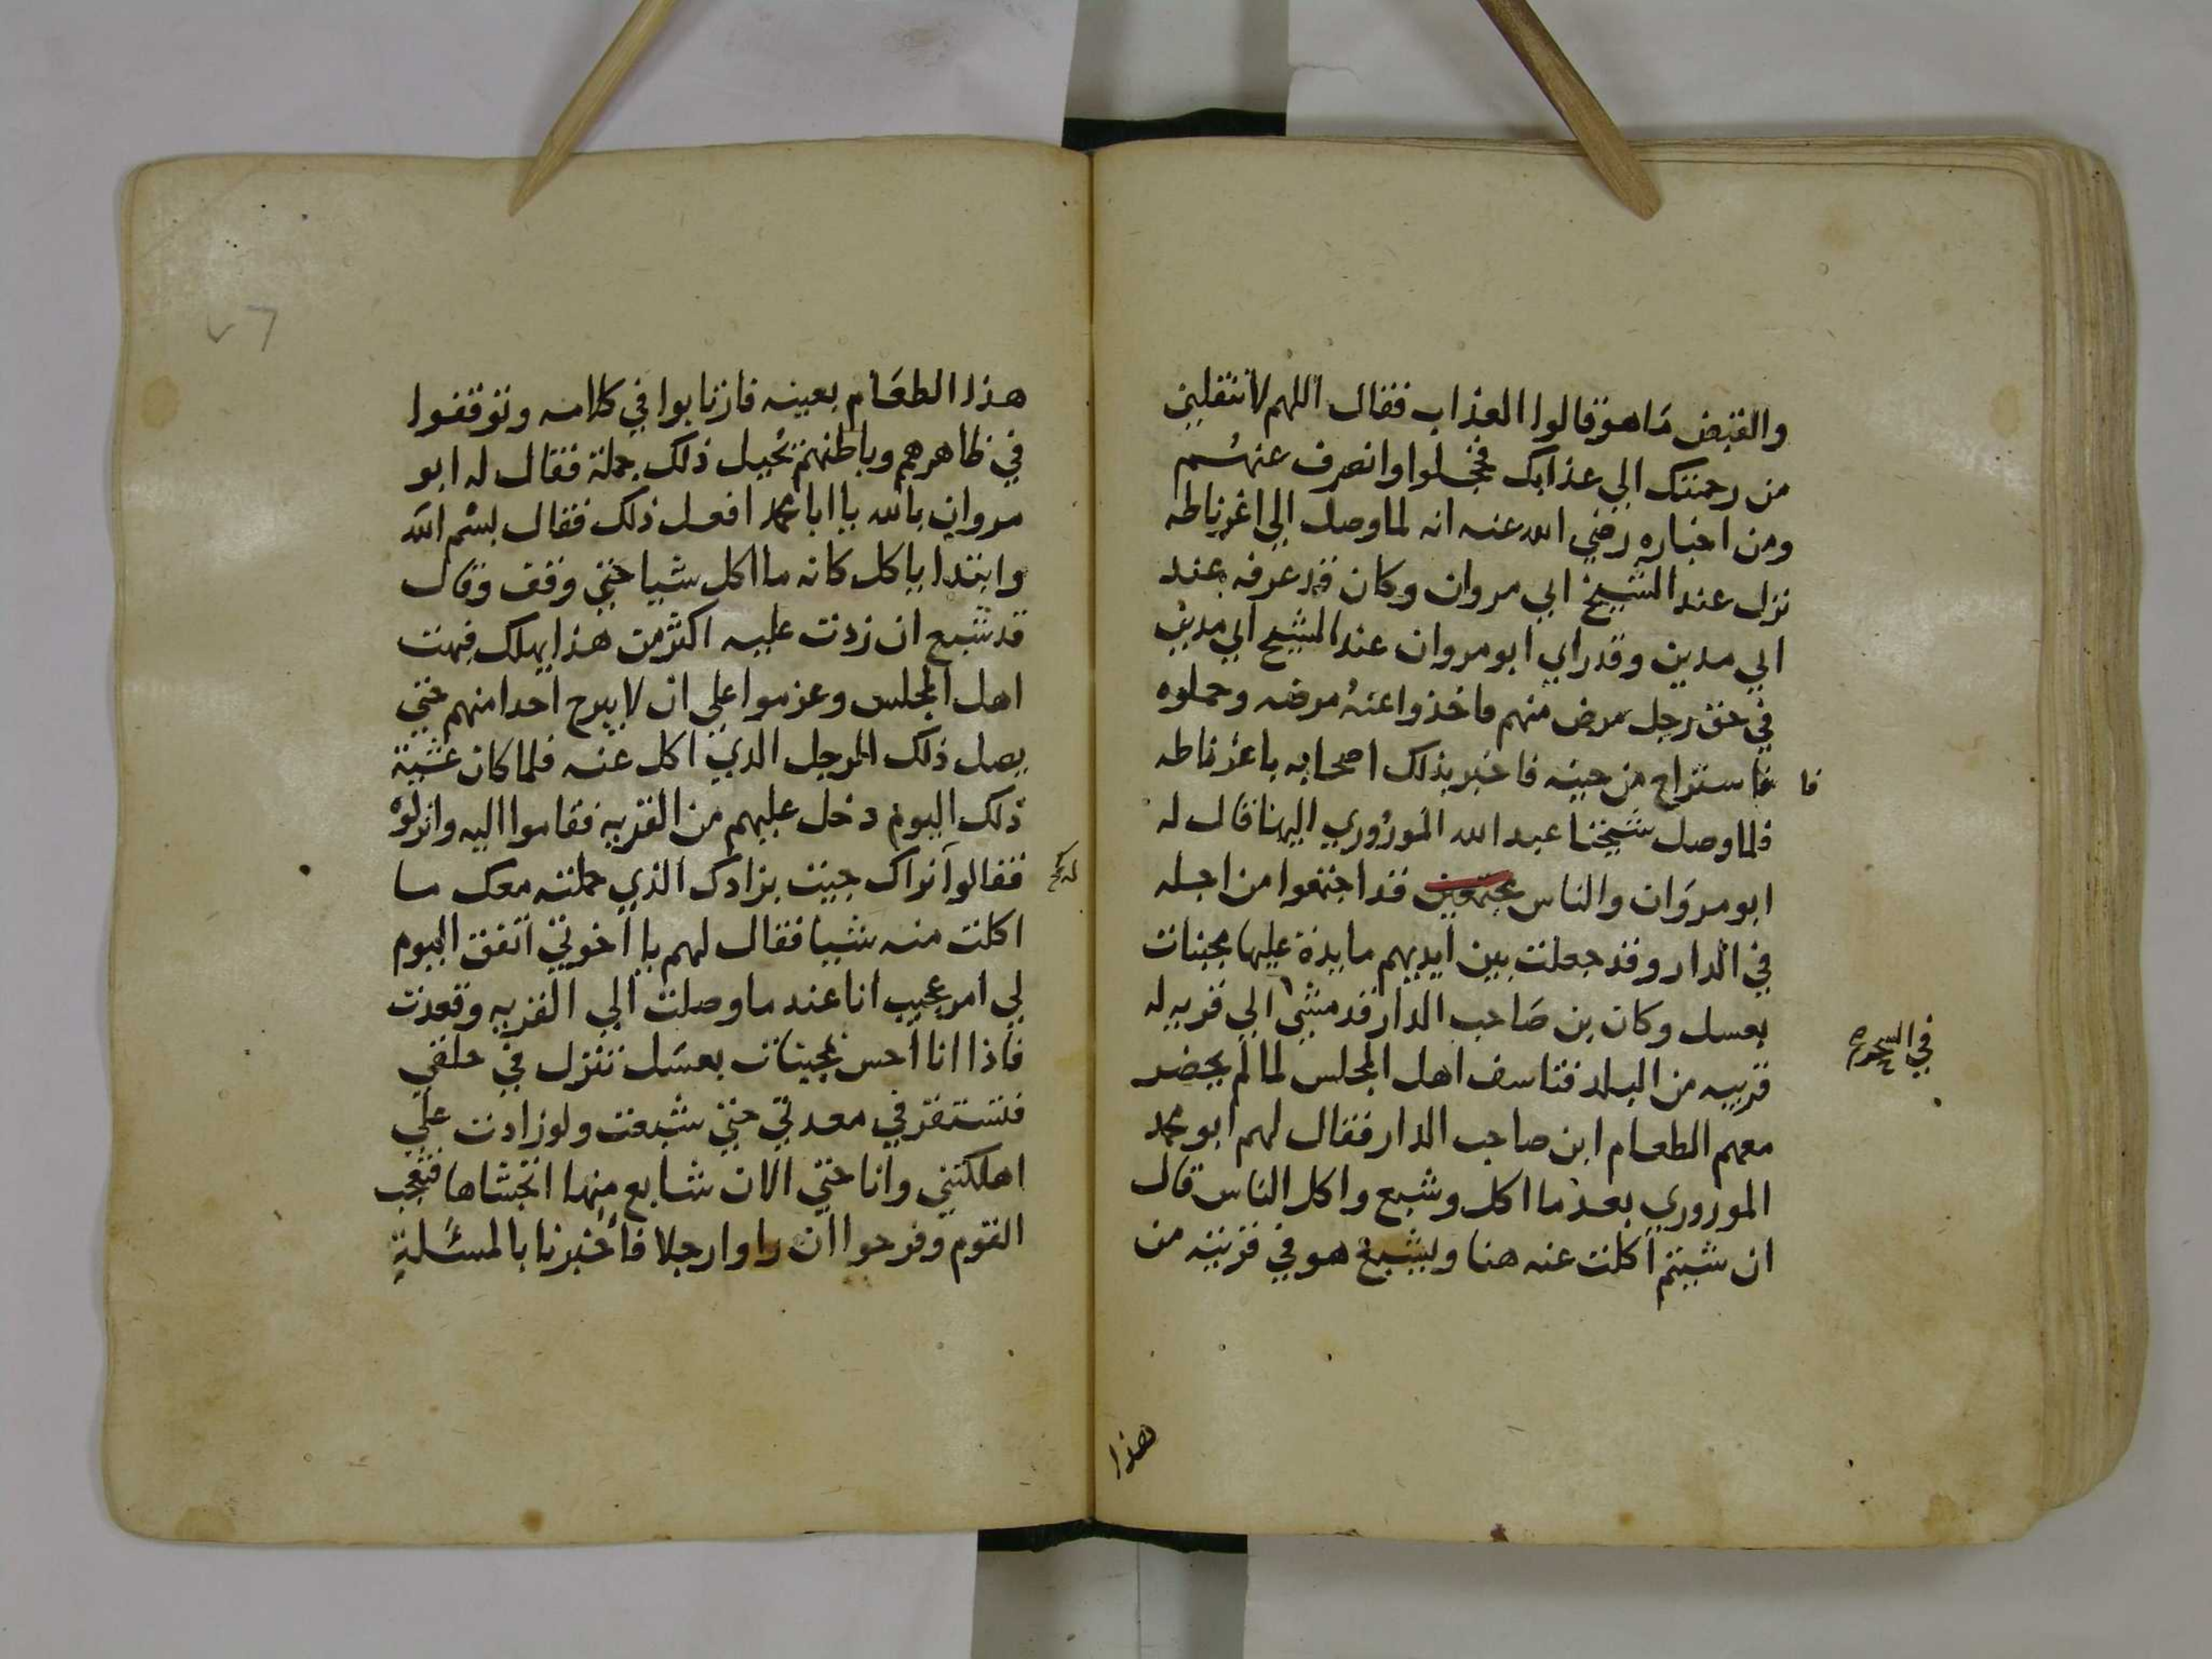 والقبض ما هو قالوا العذاب فقال اللهم لا تنقلني
من رحمتك الي عذابك فخجلوا وانصرف عنهم
ومن اخباره رضي الله عنه انه لما وصل الي اغرناطه
نزل عند الشيخ ابي مروان وكان قد عرفه عند
ابي مدين وقد راي ابو مروان عند الشيخ ابي مدين
في حق رجل مرض منهم فاخذوا عنه مرضه وحملوه
فاستراح من حينه فاخبر بذلك اصحابه باغرناطه
فا
فلما وصل شيخنا عبد الله الموروري الينا قال له
ابو مروان والناس مجتمعين قد اجتمعوا من اجله
في الدار وقد جعلت بين ايديهم مايدة عليها مجبنات
بعسل وكان بن صاحب الدار قد مشي الي قريه له
قريبه من البلد فتاسف اهل المجلس لما لم يحضر
معهم الطعام ابن صاحب الدار فقال لهم ابو محمد
الموروري بعد ما اكل وشبع واكل الناس قال
ان شيتم اكلت عنه هنا ويشبع هو في قريته من
هذا
هذا الطعام بعينه فارتابوا في كلامه وتوقفوا
في ظاهرهم وباطنهم تخيل ذلك جملة فقال له ابو
مروان بالله يا ابا محمد افعل ذلك فقال بسم الله
وابتدا ياكل كانه ما اكل شيا حتي وقف وقال
قد شبع ان زدت عليه اكثر من هذا يهلك فبهت
اهل المجلس وعزموا علي ان لا يبرح احدا منهم حتي
يصل ذلك الرجل الذي اكل عنه فلما كان عشية
ذلك اليوم دخل عليهم من القريه فقاموا اليه وانزلوه
فقالوا نراك جيت بزادك الذي حملته معك ما
اكلت منه شيا فقال لهم يا اخوتي اتفق اليوم
لي امر عجيب انا عند ما وصلت الي القريه وقعدت
فاذا انا احس بمجبنات بعسل تنزل في حلقي
فتستقر في معدتي حتي شبعت ولو زادت علي
اهلكتني وانا حتي الان شابع منها اتجشاها فتعجب
القوم وفرحوا ان راوا رجلا فاخبرنا بالمسئلة